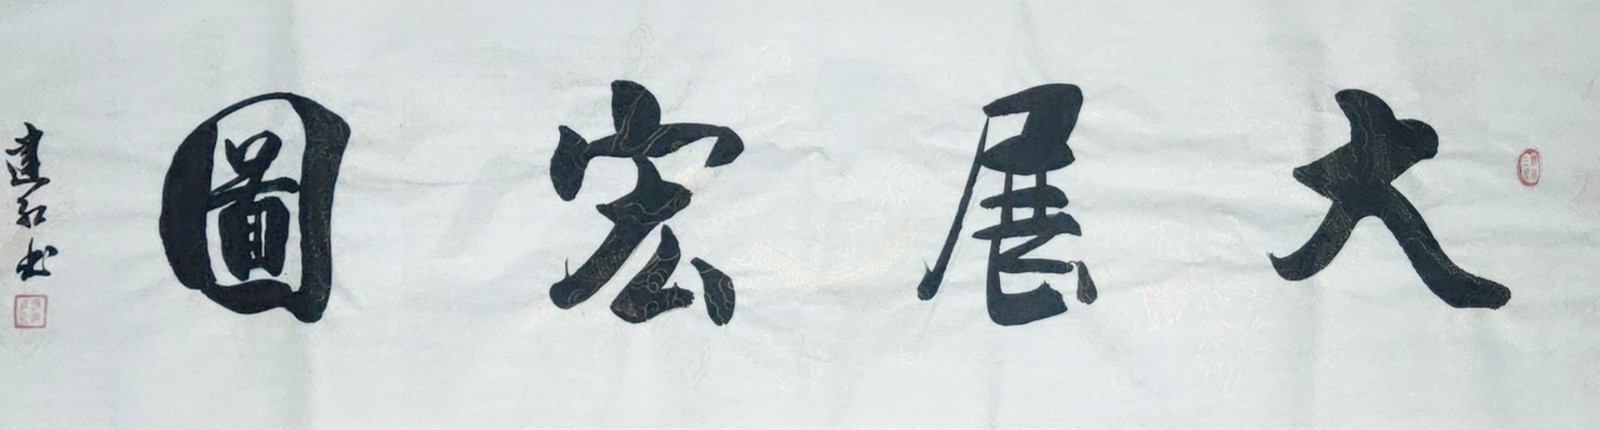 大展宏圖
建红书